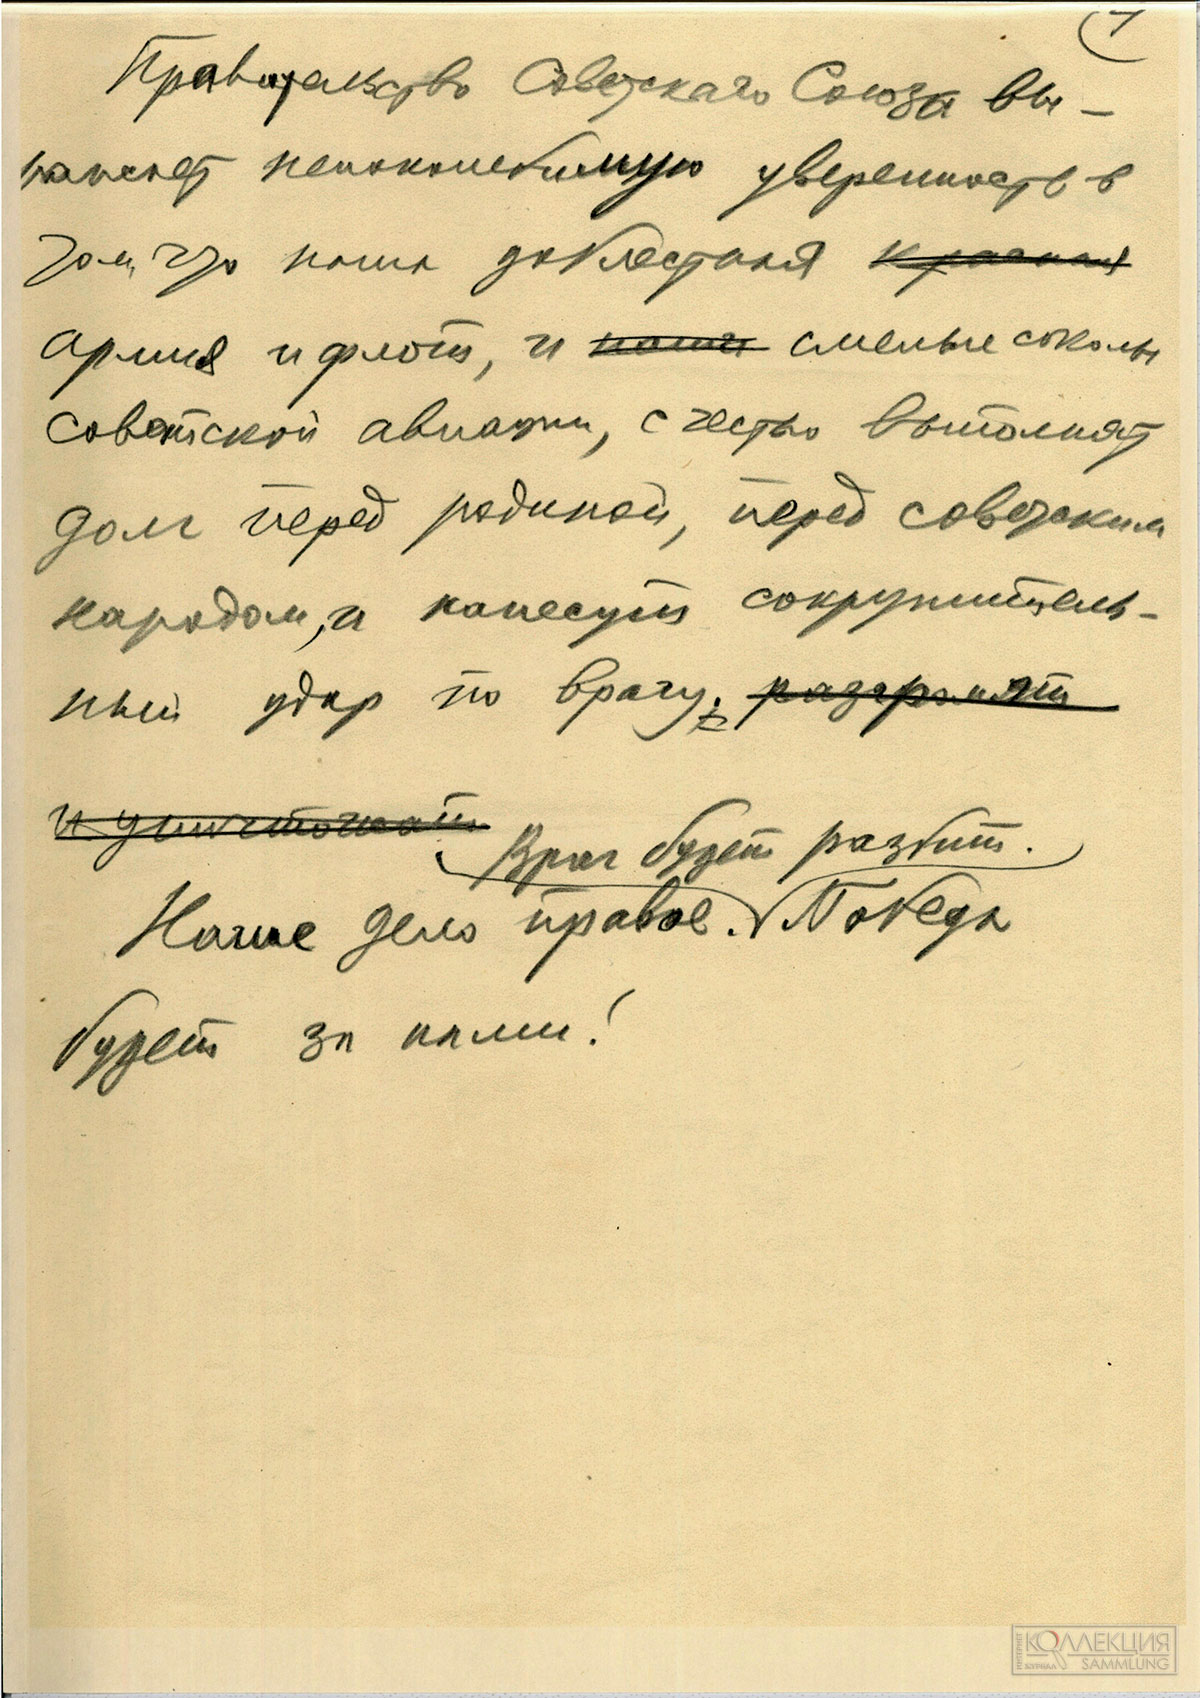 Правительство Советскаго Союза вы-
ражает непоколебимую уверенность в
том, что наша доблестная красная
армия и флот, и наши смелые соколы
советской авиации, с честью выполнят
долг перед родиной, перед советским
народом, и нанесут сокрушитель-
ный удар по врагу. разгромят
и уничтожат
Враг будет разбит.
Наше дело правое. Победа
будет за нами!
ИНТЕРНЕТ ЖУРНАЛ КОЛЛЕКЦИЯ
SAMMLUNG